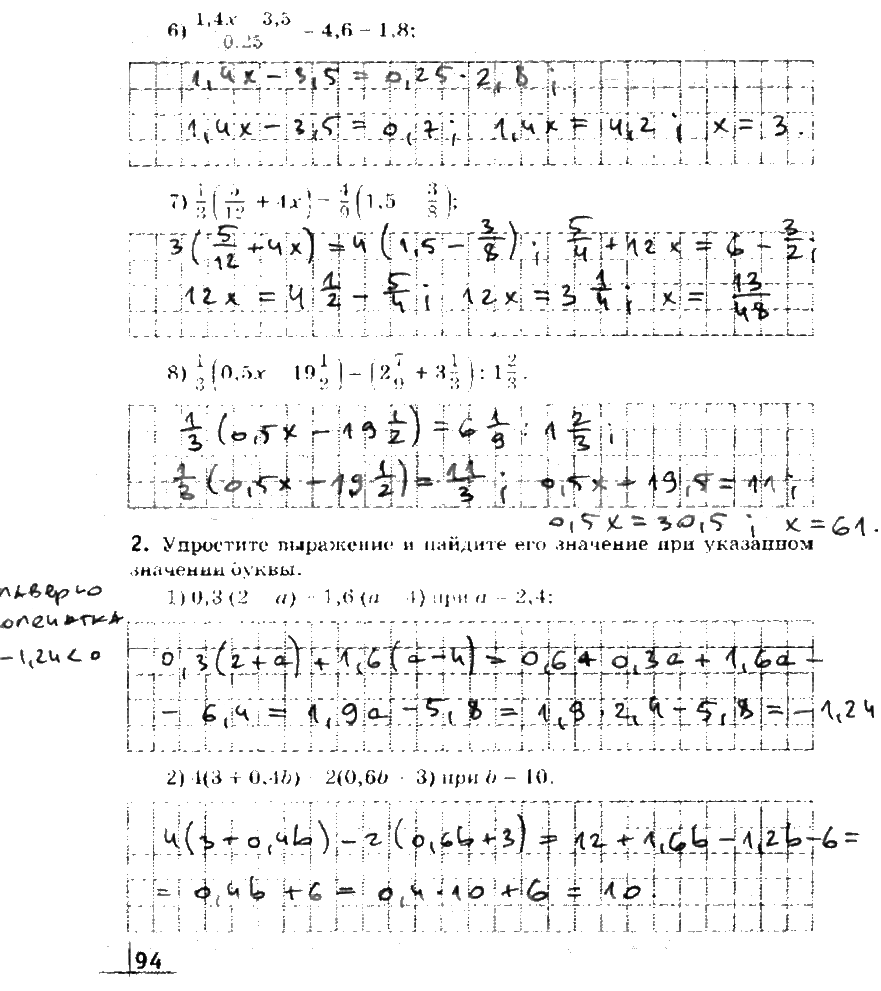 6) 1,4x 3,5 / 0,25 = 4,6 − 1,8;
1,4x − 3,5 = 0,25 · 2,8;
1,4x − 3,5 = 0,7; 1,4x = 4,2; x = 3.
7) 1/3 (5/12 + 4x) = 4/9 (1,5 3/8);
3(5/12 + 4x) = 4(1,5 − 3/8); 5/4 + 12x = 6 − 3/2;
12x = 4 1/2 − 5/4; 12x = 3 1/4; x = 13/48
8) 1/3 (0,5x 19 1/2) = (2 7/9 + 3 1/3) : 1 2/3.
1/3 (0,5x − 19 1/2) = 6 1/9 : 1 2/3;
1/3 (0,5x − 19 1/2) = 11/3; 0,5x − 19,5 = 11;
0,5x = 30,5; x = 61.
2. Упростите выражение и найдите его значение при указанном
значении буквы.
наверно
опечатка
−1,24 < 0
1) 0,3(2 a) 1,6(a 4) при a = 2,4;
0,3(2+a) + 1,6(a−4) = 0,6 + 0,3a + 1,6a −
− 6,4 = 1,9a − 5,8 = 1,9 · 2,4 − 5,8 = −1,24
2) 4(3 + 0,4b) 2(0,6b 3) при b = 10.
4(3 + 0,4b) − 2(0,6b + 3) = 12 + 1,6b − 1,2b − 6 =
= 0,4b + 6 = 0,4 · 10 + 6 = 10.
94